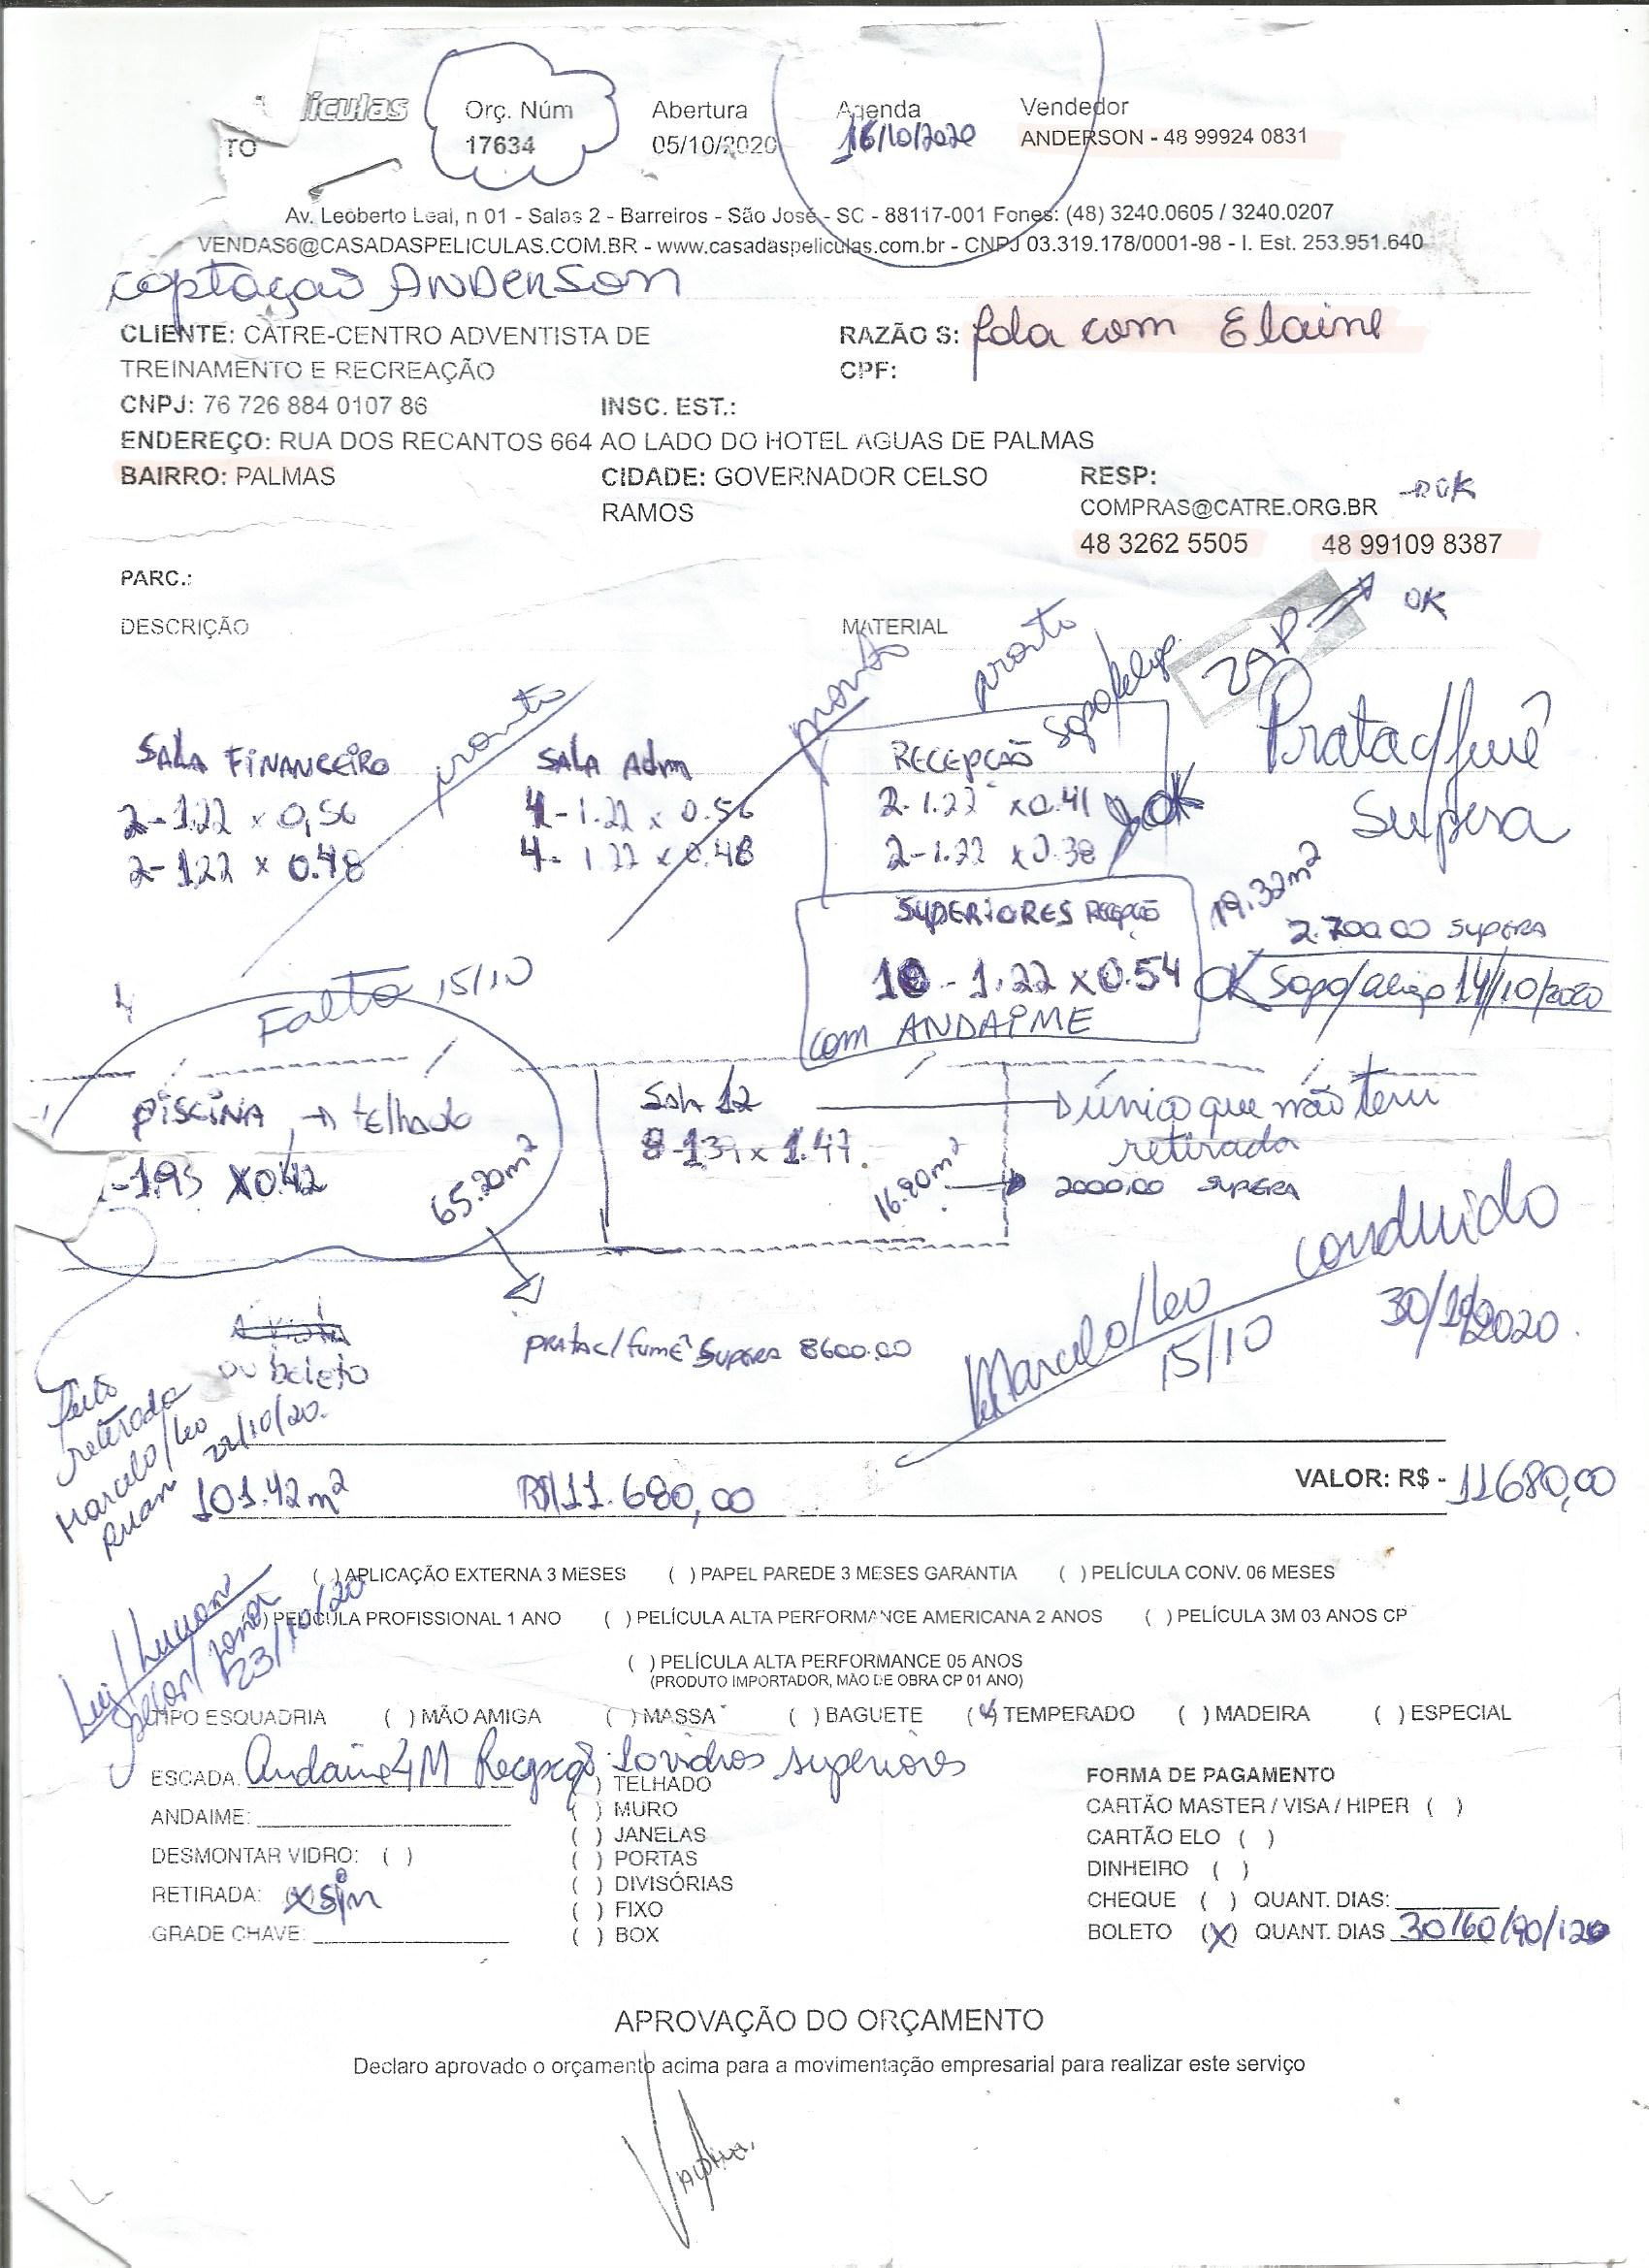 liculas
Orç. Núm
Abertura
Agenda
Vendedor
TO
17634
05/10/2020
16/10/2020
ANDERSON - 48 99924 0831
Av. Leoberto Leal, n 01 - Salas 2 - Barreiros - São José - SC - 88117-001 Fones: (48) 3240.0605 / 3240.0207
VENDAS6@CASADASPELICULAS.COM.BR - www.casadaspeliculas.com.br - CNPJ 03.319.178/0001-98 - I. Est. 253.951.640
captação ANDERSON
CLIENTE: CATRE-CENTRO ADVENTISTA DE
TREINAMENTO E RECREAÇÃO
RAZÃO S: fala com Elaine
CPF:
CNPJ: 76 726 884 0107 86
INSC. EST.:
ENDEREÇO: RUA DOS RECANTOS 664 AO LADO DO HOTEL AGUAS DE PALMAS
BAIRRO: PALMAS
CIDADE: GOVERNADOR CELSO
RAMOS
RESP:
COMPRAS@CATRE.ORG.BR
OK
48 3262 5505
48 99109 8387
PARC.:
DESCRIÇÃO
MATERIAL
ZAP
OK
pronto
pronto
pronto
Prata c/ fumê
Supera
SALA FINANCEIRO
2-1.22 x 0,56
2-1.22 x 0.48
SALA Adm
4-1.22 x 0.56
4-1.22 x 0.48
RECEPÇÃO
2-1.22 x 0.41
2-1.22 x 0.38
OK
SUPERIORES RECEPÇÃO
10 - 1.22 x 0.54
com ANDAIME
19.32m²
2.700.00 SUPERA
OK
14/10/2020
Falta 15/10
PISCINA → telhado
-1.93 x 0.42
65.20m²
Sala 12
8-1.39 x 1.47
16.90m²
único que não tem
retirada
2000,00 SUPERA
PRATA C/ fumê SUPERA 8600.00
A vista
ou boleto
Marcelo/Leo
15/10
concluido
30/10/2020.
feito
retirada
Marcelo/Leo
Ruan
22/10/20.
101.42m²
R$ 11.680,00
VALOR: R$ - 11680,00
( ) APLICAÇÃO EXTERNA 3 MESES
( ) PAPEL PAREDE 3 MESES GARANTIA
( ) PELÍCULA CONV. 06 MESES
( ) PELÍCULA PROFISSIONAL 1 ANO
( ) PELÍCULA ALTA PERFORMANCE AMERICANA 2 ANOS
( ) PELÍCULA 3M 03 ANOS CP
( ) PELÍCULA ALTA PERFORMANCE 05 ANOS
(PRODUTO IMPORTADOR, MÃO DE OBRA CP 01 ANO)
23/10/20
TIPO ESQUADRIA
( ) MÃO AMIGA
( ) MASSA
( ) BAGUETE
( ) TEMPERADO
( ) MADEIRA
( ) ESPECIAL
ESCADA: Andaime 4M Recepção 10 vidros superiores
ANDAIME:
DESMONTAR VIDRO: ( )
RETIRADA: (x) sim
GRADE CHAVE:
( ) TELHADO
( ) MURO
( ) JANELAS
( ) PORTAS
( ) DIVISÓRIAS
( ) FIXO
( ) BOX
FORMA DE PAGAMENTO
CARTÃO MASTER / VISA / HIPER ( )
CARTÃO ELO ( )
DINHEIRO ( )
CHEQUE ( ) QUANT. DIAS:
BOLETO (X) QUANT. DIAS 30/60/90/120
APROVAÇÃO DO ORÇAMENTO
Declaro aprovado o orçamento acima para a movimentação empresarial para realizar este serviço